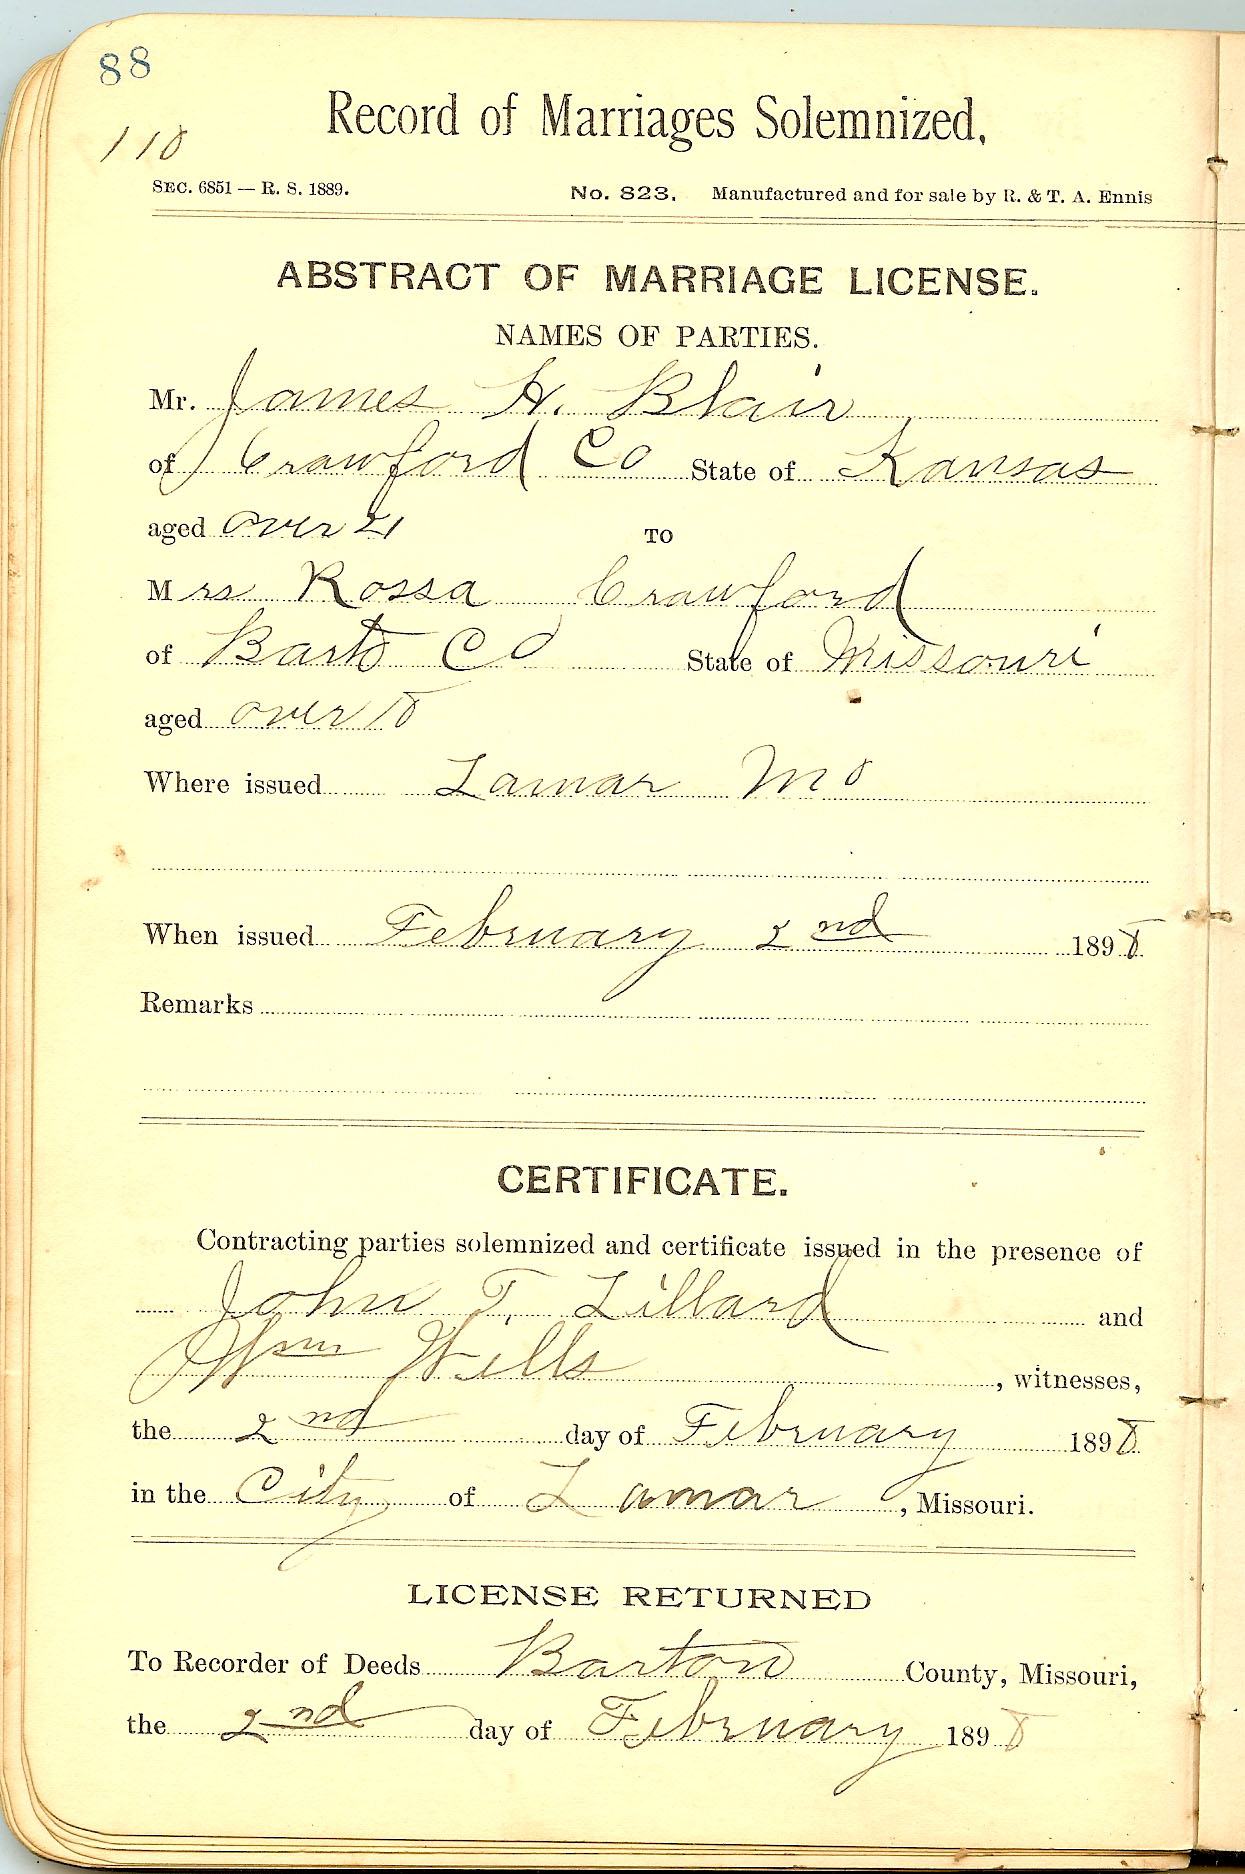 88
118
Record of Marriages Solemnized,
SEC. 6851 — R. S. 1889. No. 823. Manufactured and for sale by R. & T. A. Ennis
ABSTRACT OF MARRIAGE LICENSE.
NAMES OF PARTIES.
Mr. James H. Blair
of Crawford Co State of Kansas
aged over 21 TO
Mrs Rossa Crawford
of Barto Co State of Missouri
aged over 18
Where issued Lamar Mo
When issued February 2nd 1898
Remarks
CERTIFICATE.
Contracting parties solemnized and certificate issued in the presence of
John T. Lillard and
Wm Wells, witnesses,
the 2nd day of February 1898
in the City of Lamar, Missouri.
LICENSE RETURNED
To Recorder of Deeds Barton County, Missouri,
the 2nd day of February 1898